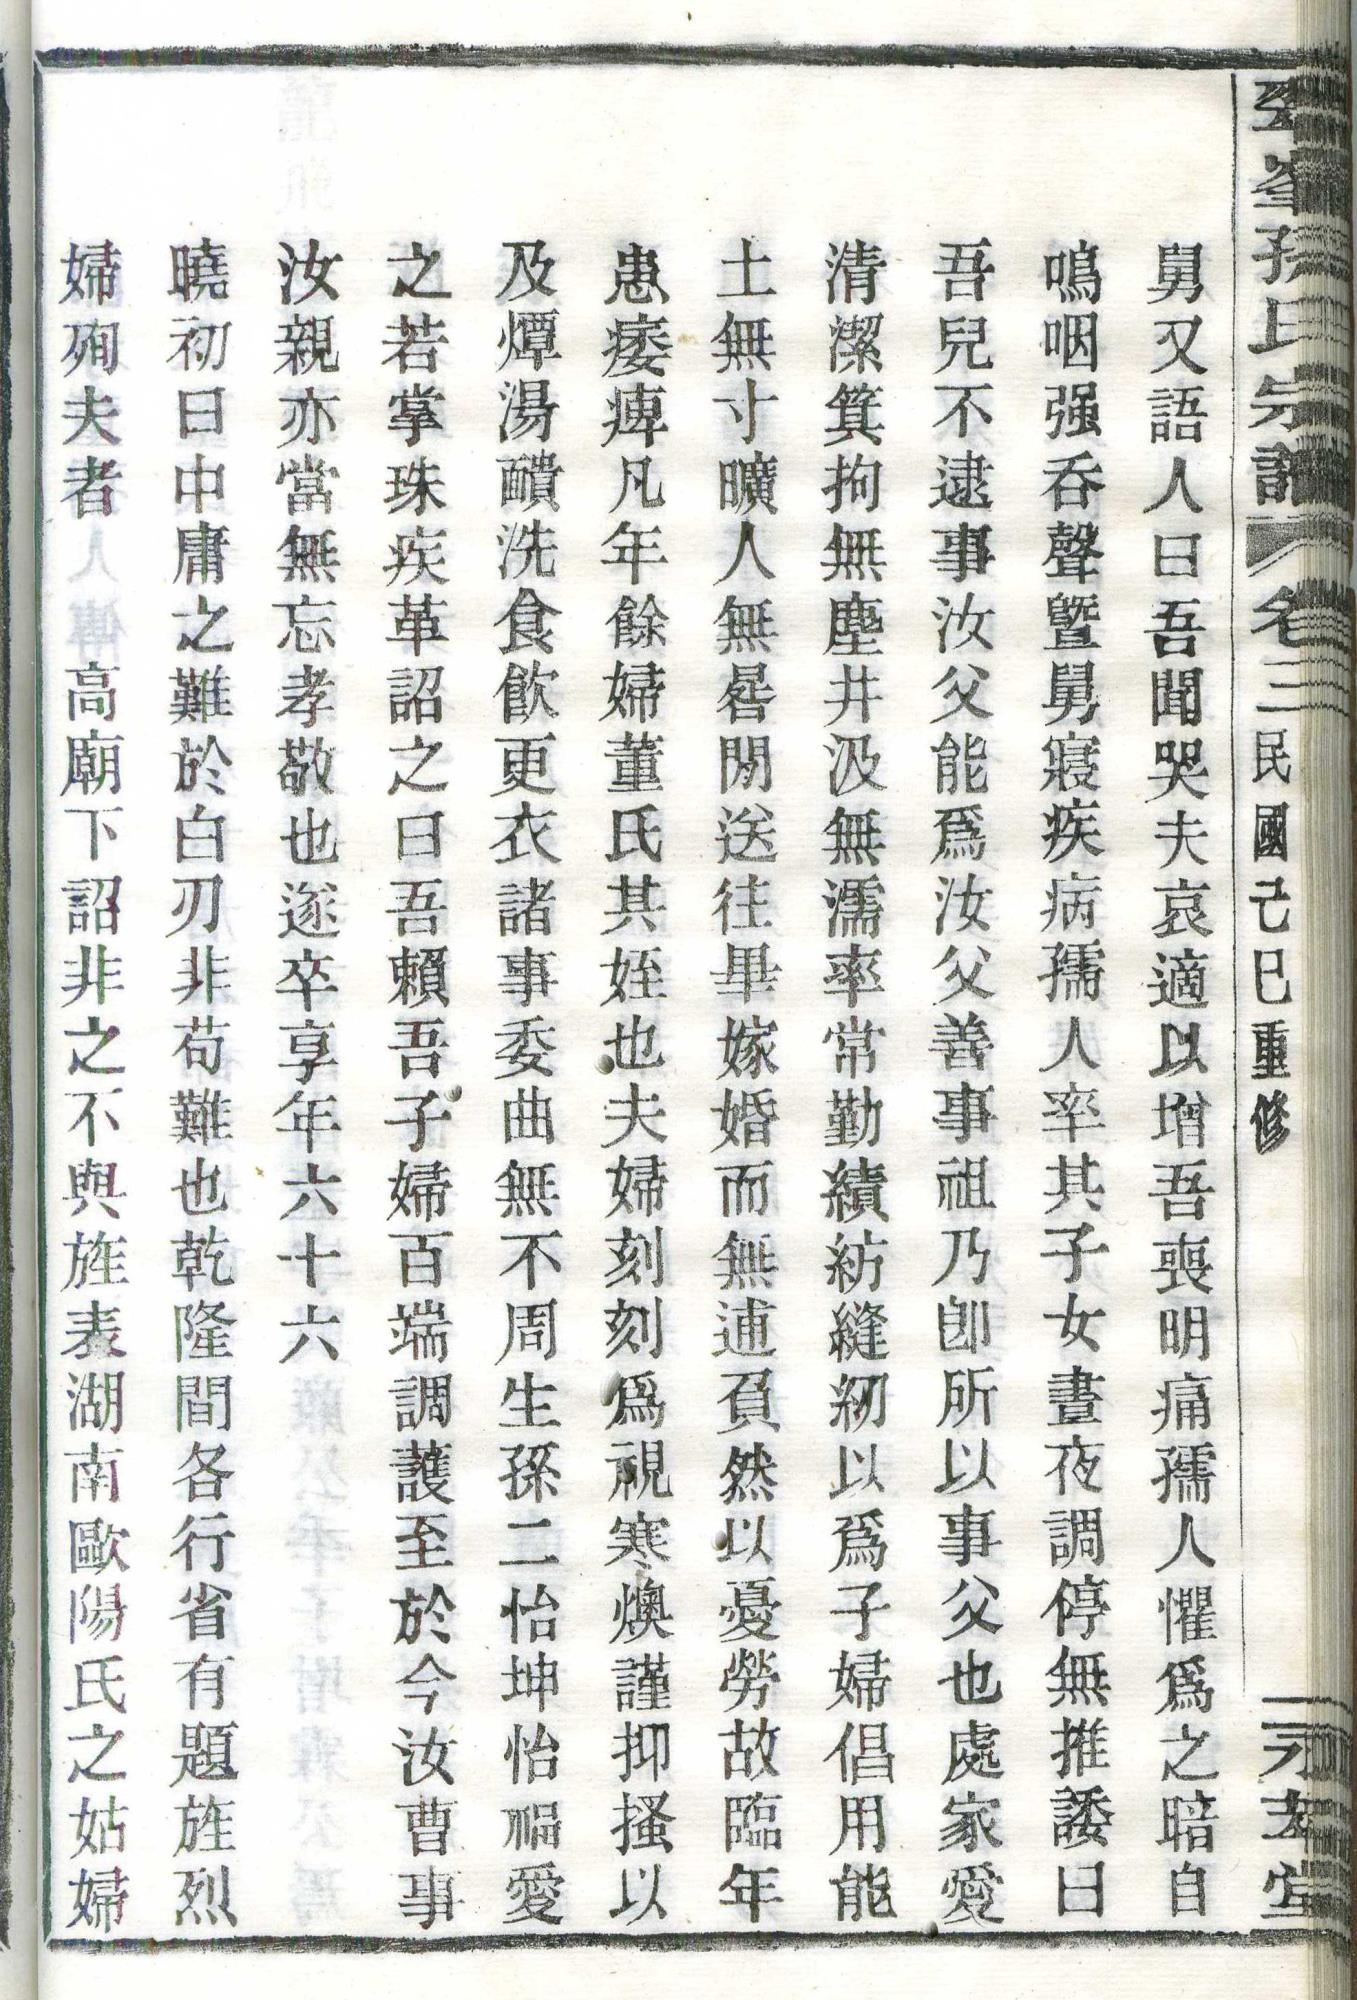 峯孫氏宗譜 卷三 民國己巳重修
舅又語人曰吾聞哭夫哀適以增吾喪明痛孺人懼爲之暗自
鳴咽强呑聲曁舅寢疾病孺人率其子女晝夜調停無推諉曰
吾兒不逮事汝父能爲汝父善事祖乃卽所以事父也處家愛
清潔箕拘無塵井汲無濡率常勤績紡縫紉以爲子婦倡用能
土無寸曠人無晷閒送徃畢嫁婚而無逋負然以憂勞故臨年
患痿痺凡年餘婦董氏其姪也夫婦刻刻爲視寒燠謹抑搔以
及燂湯醻洗食飮更衣諸事委曲無不周生孫二怡坤怡福愛
之若掌珠疾革詔之曰吾賴吾子婦百端調護至於今汝曹事
汝親亦當無忘孝敬也遂卒享年六十六
曉初曰中庸之難於白刃非苟難也乾隆間各行省有題旌烈
婦殉夫者 高廟下詔非之不與旌表湖南歐陽氏之姑婦
堂